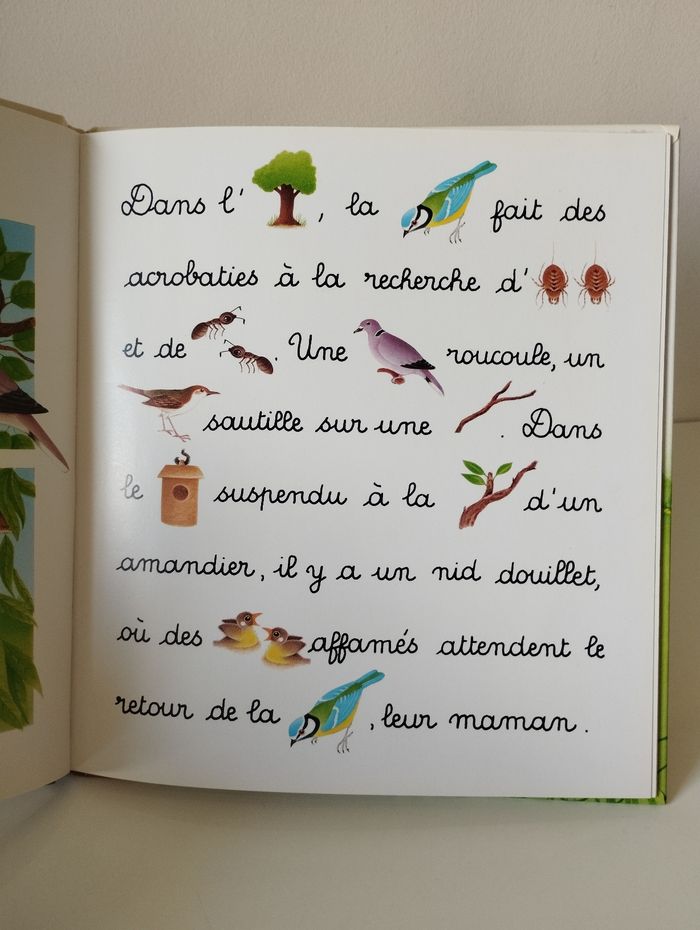 Dans l' , la fait des
acrobaties à la recherche d'
et de . Une roucoule, un
sautille sur une . Dans
le suspendu à la d'un
amandier, il y a un nid douillet,
où des affamés attendent le
retour de la , leur maman.